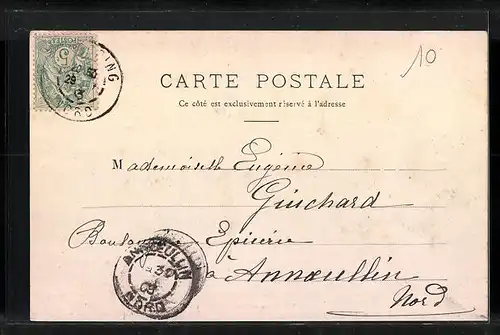 10
CARTE POSTALE
Ce côté est exclusivement réservé à l'adresse
Mademoiselle Eugénie
Guichard
Epicerie
à Annoeullin
Nord
ANNOEULLIN
30
NORD